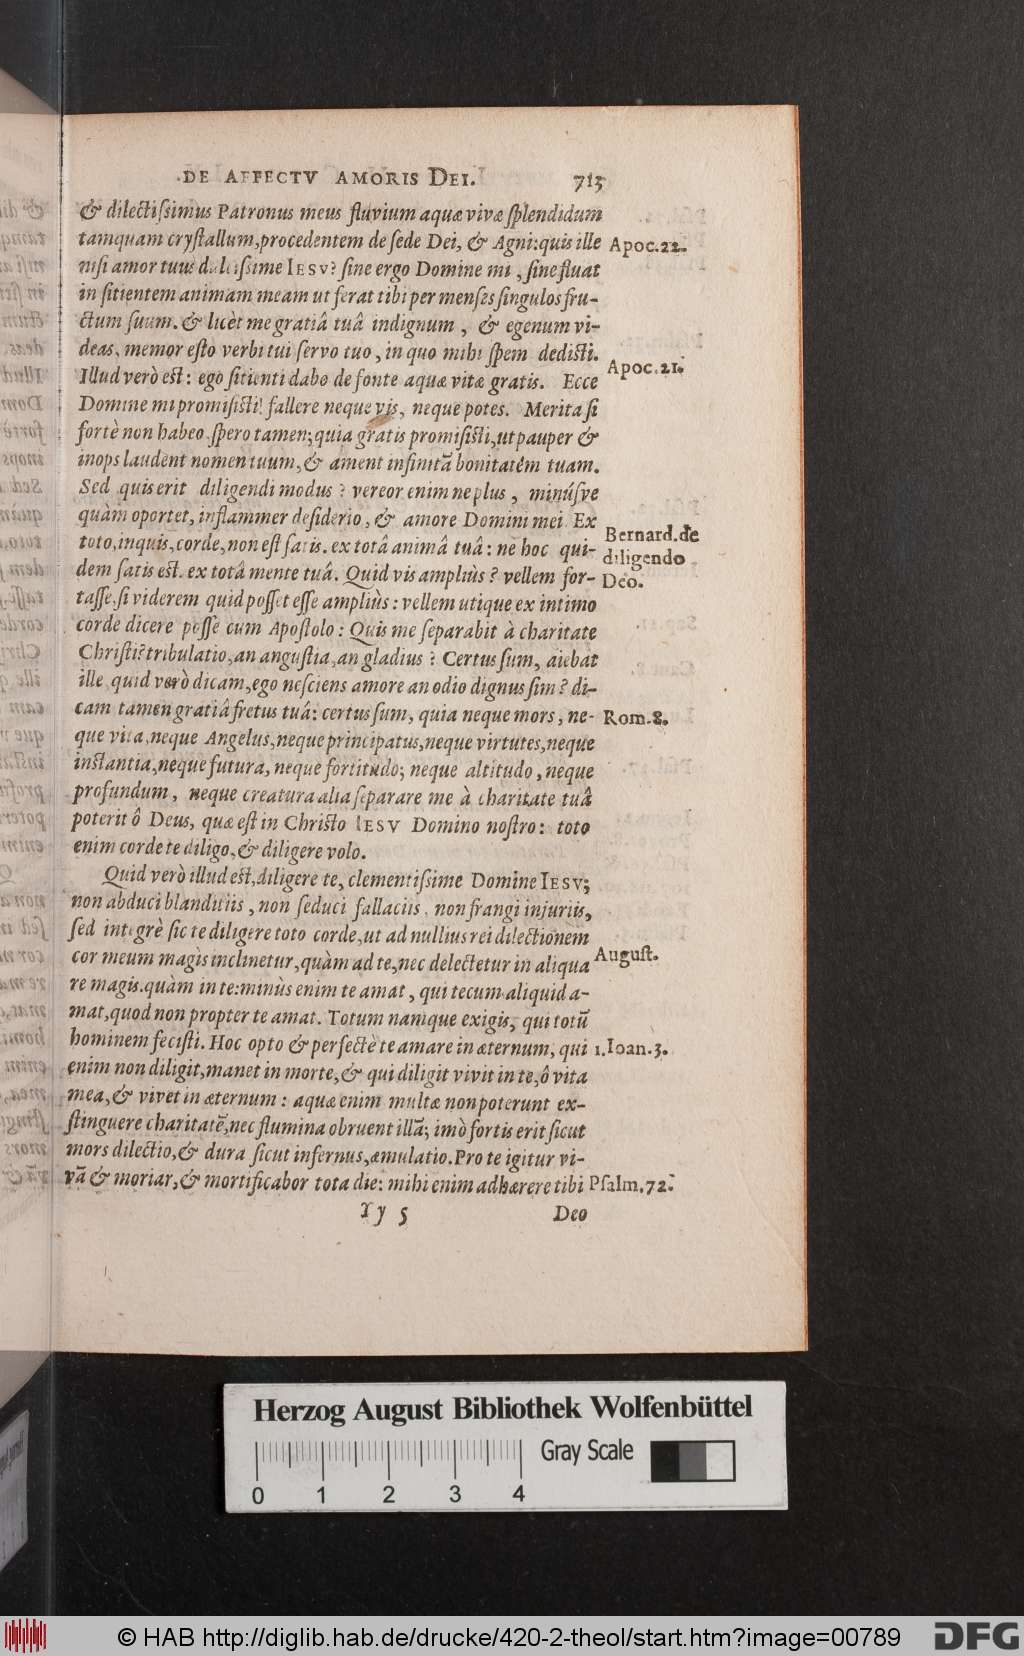 DE AFFECTV AMORIS DEI. 713
& dilectissimus Patronus meus fluvium aquæ vivæ splendidum
tamquam crystallum, procedentem de sede Dei, & Agni: quis ille
Apoc. 22.
nisi amor tuus dulcissime IESV? sine ergo Domine mi, sine fluat
in sitientem animam meam ut ferat tibi per menses singulos fru-
ctum suum. & licèt me gratiâ tuâ indignum, & egenum vi-
deas, memor esto verbi tui servo tuo, in quo mihi spem dedisti.
Illud verò est: ego sitienti dabo de fonte aquæ vitæ gratis. Ecce
Apoc. 21.
Domine mi promisisti! fallere neque vis, neque potes. Merita si
fortè non habeo, spero tamen; quia gratis promisisti, ut pauper &
inops laudent nomen tuum, & ament infinitā bonitatem tuam.
Sed quis erit diligendi modus? vereor enim ne plus, minúsve
quàm oportet, inflammer desiderio, & amore Domini mei Ex
Bernard. de
toto, inquis, corde, non est satis. ex totâ animâ tuâ: ne hoc qui-
diligendo
dem satis est. ex totâ mente tuâ. Quid vis ampliùs? vellem for-
Deo.
tasse, si viderem quid posset esse ampliùs: vellem utique ex intimo
corde dicere posse cum Apostolo: Quis me separabit à charitate
Christi? tribulatio, an angustia, an gladius? Certus sum, aiebat
ille. quid verò dicam, ego nesciens amore an odio dignus sim? di-
cam tamen gratiâ fretus tuâ: certus sum, quia neque mors, ne-
Rom. 8.
que vita, neque Angelus, neque principatus, neque virtutes, neque
instantia, neque futura, neque fortitudo; neque altitudo, neque
profundum, neque creatura alia separare me à charitate tuâ
poterit ô Deus, quæ est in Christo IESV Domino nostro: toto
enim corde te diligo, & diligere volo.
Quid verò illud est, diligere te, clementissime Domine IESV;
non abduci blanditiis, non seduci fallaciis, non frangi injuriis,
sed integrè sic te diligere toto corde, ut ad nullius rei dilectionem
cor meum magìs inclinetur, quàm ad te, nec delectetur in aliqua
August.
re magis, quàm in te: minùs enim te amat, qui tecum aliquid a-
mat, quod non propter te amat. Totum namque exigis, qui totū
hominem fecisti. Hoc opto & perfectè te amare in æternum, qui
1. Ioan. 3.
enim non diligit, manet in morte, & qui diligit vivit in te, ô vita
mea, & vivet in æternum: aquæ enim multæ non poterunt ex-
stinguere charitatē, nec flumina obruent illā; imò fortis erit sicut
mors dilectio, & dura sicut infernus, æmulatio. Pro te igitur vi-
vā & moriar, & mortificabor tota die: mihi enim adhærere tibi
Psalm. 72.
Yy 5 Deo
Herzog August Bibliothek Wolfenbüttel
Gray Scale
0 1 2 3 4
© HAB http://diglib.hab.de/drucke/420-2-theol/start.htm?image=00789
DFG